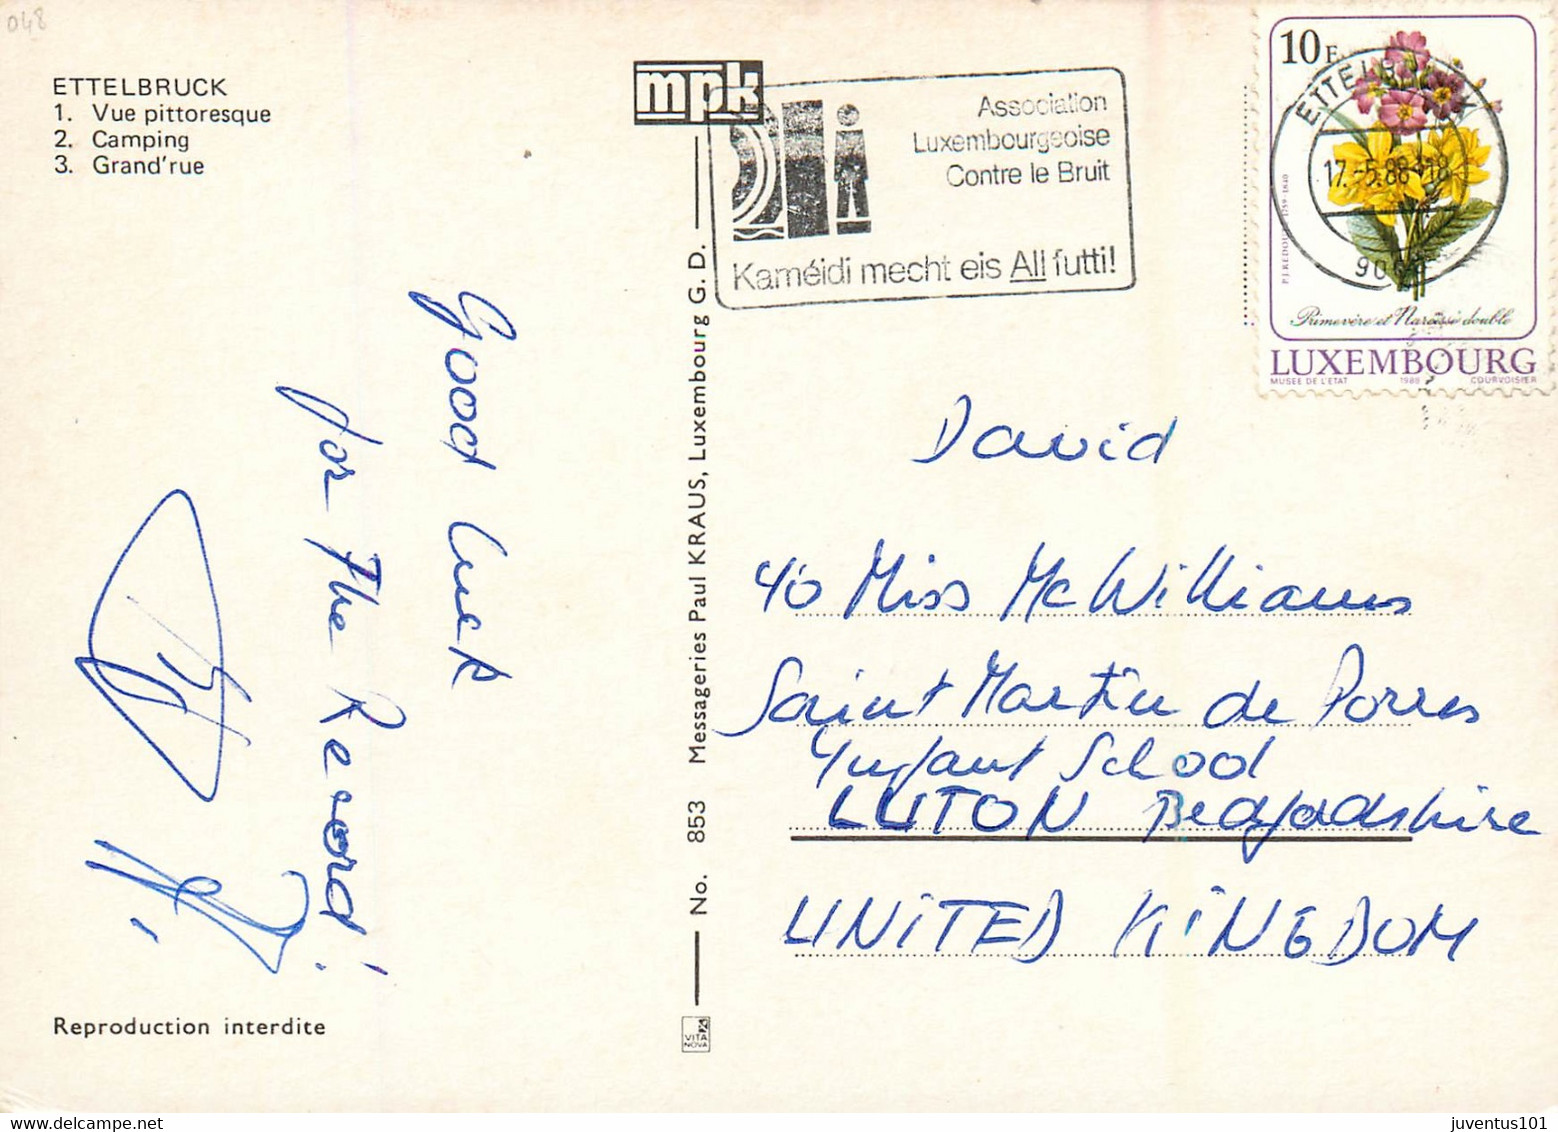 048
ETTELBRUCK
1. Vue pittoresque
2. Camping
3. Grand'rue
mpk
Association
Luxembourgeoise
Contre le Bruit
Kaméidi mecht eis All futti!
10F
ETTELBRUCK
17.-5.88-18
P.J. REDOUTE 1759-1840
Primevère et Narcisse double
LUXEMBOURG
MUSEE DE L'ETAT 1988 COURVOISIER
Good Luck
for The Record!
No. 853 Messageries Paul KRAUS, Luxembourg G. D.
David
40 Miss McWilliams
Saint Martin de Porres
Infant School
LUTON Bedfordshire
UNITED KINGDOM
Reproduction interdite
VITA
NOVA
juventus101